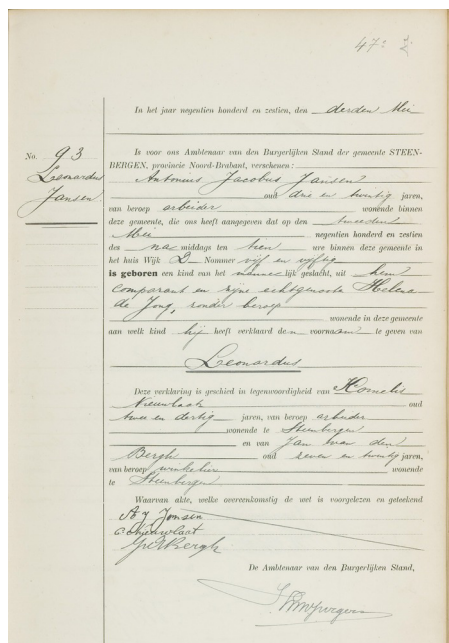 47
In het jaar negentien honderd en zestien, den derden Mei
No. 93
Leonardus
Jansen
Is voor ons Ambtenaar van den Burgerlijken Stand der gemeente STEEN-
BERGEN, provincie Noord-Brabant, verschenen:
Antonius Jacobus Jansen
oud drie en twintig jaren,
van beroep arbeider wonende binnen
deze gemeente, die ons heeft aangegeven dat op den tweeden
Mei negentien honderd en zestien
des na middags ten tien ure binnen deze gemeente in
het huis Wijk Nommer vijf en vijftig
is geboren een kind van het mannelijk geslacht, uit hem
comparant en zijne echtgenoote Helena
de Jong, zonder beroep
wonende in deze gemeente
aan welk kind hij heeft verklaard den voornaam te geven van
Leonardus
Deze verklaring is geschied in tegenwoordigheid van Kornelis
Nieuwlaat oud
twee en dertig jaren, van beroep arbeider
wonende te Steenbergen
en van Jan van den
Bergh oud zeven en twintig jaren,
van beroep winkelier wonende
te Steenbergen
Waarvan akte, welke overeenkomstig de wet is voorgelezen en geteekend
A J Jansen
C Nieuwlaat
De Ambtenaar van den Burgerlijken Stand,